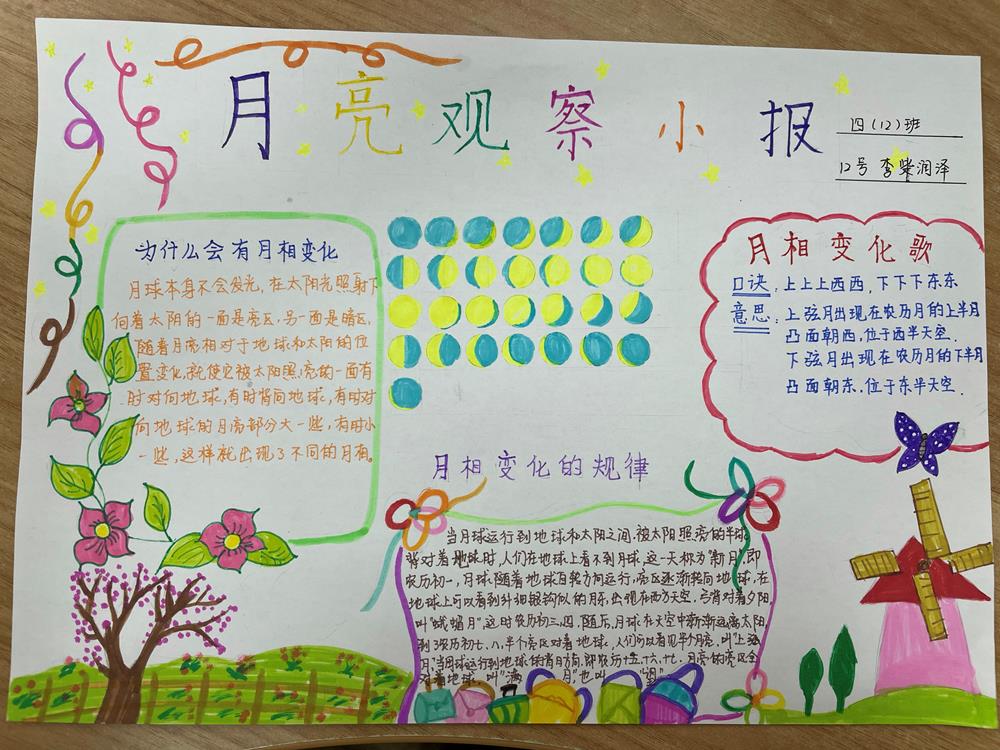 月亮观察小报
四(12)班
12号 李柴润泽
为什么会有月相变化
月球本身不会发光,在太阳光照射下
向着太阳的一面是亮区,另一面是暗区,
随着月亮相对于地球和太阳的位
置变化,就使它被太阳照亮的一面有
时对向地球,有时背向地球,有时对
向地球的月亮部分大一些,有时小
一些,这样就出现了不同的月相。
月相变化歌
口诀:上上上西西,下下下东东
意思:上弦月出现在农历月的上半月
凸面朝西,位于西半天空.
下弦月出现在农历月的下半月
凸面朝东.位于东半天空.
月相变化的规律
当月球运行到地球和太阳之间,被太阳照亮的半球
背对着地球时,人们在地球上看不到月球,这一天称为"新月",即
农历初一,月球随着地球自转方向运行,亮区逐渐转向地球,在
地球上可以看到 银钩似的月牙,出现在西方天空.它背对着夕阳
叫"蛾眉月",这时农历初三、四.随后,月球在天空中渐渐远离太阳
到了农历初七、八,半个亮区对着地球,人们可以看见半个月亮,叫"上弦
月".当月球运行到地球的背日方向,即农历十五、十六、十七.月亮的亮区全
对着地球,叫"满 月"也叫 "望"